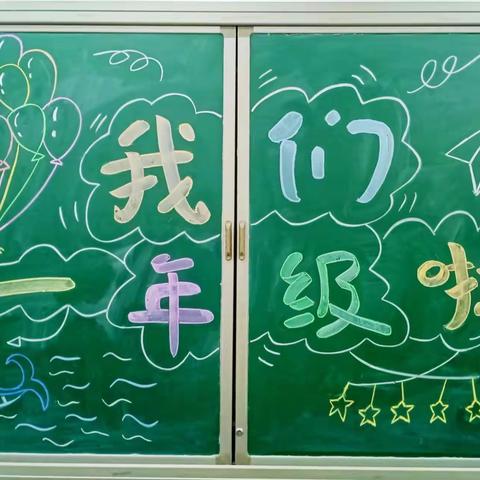 我们
一年级啦